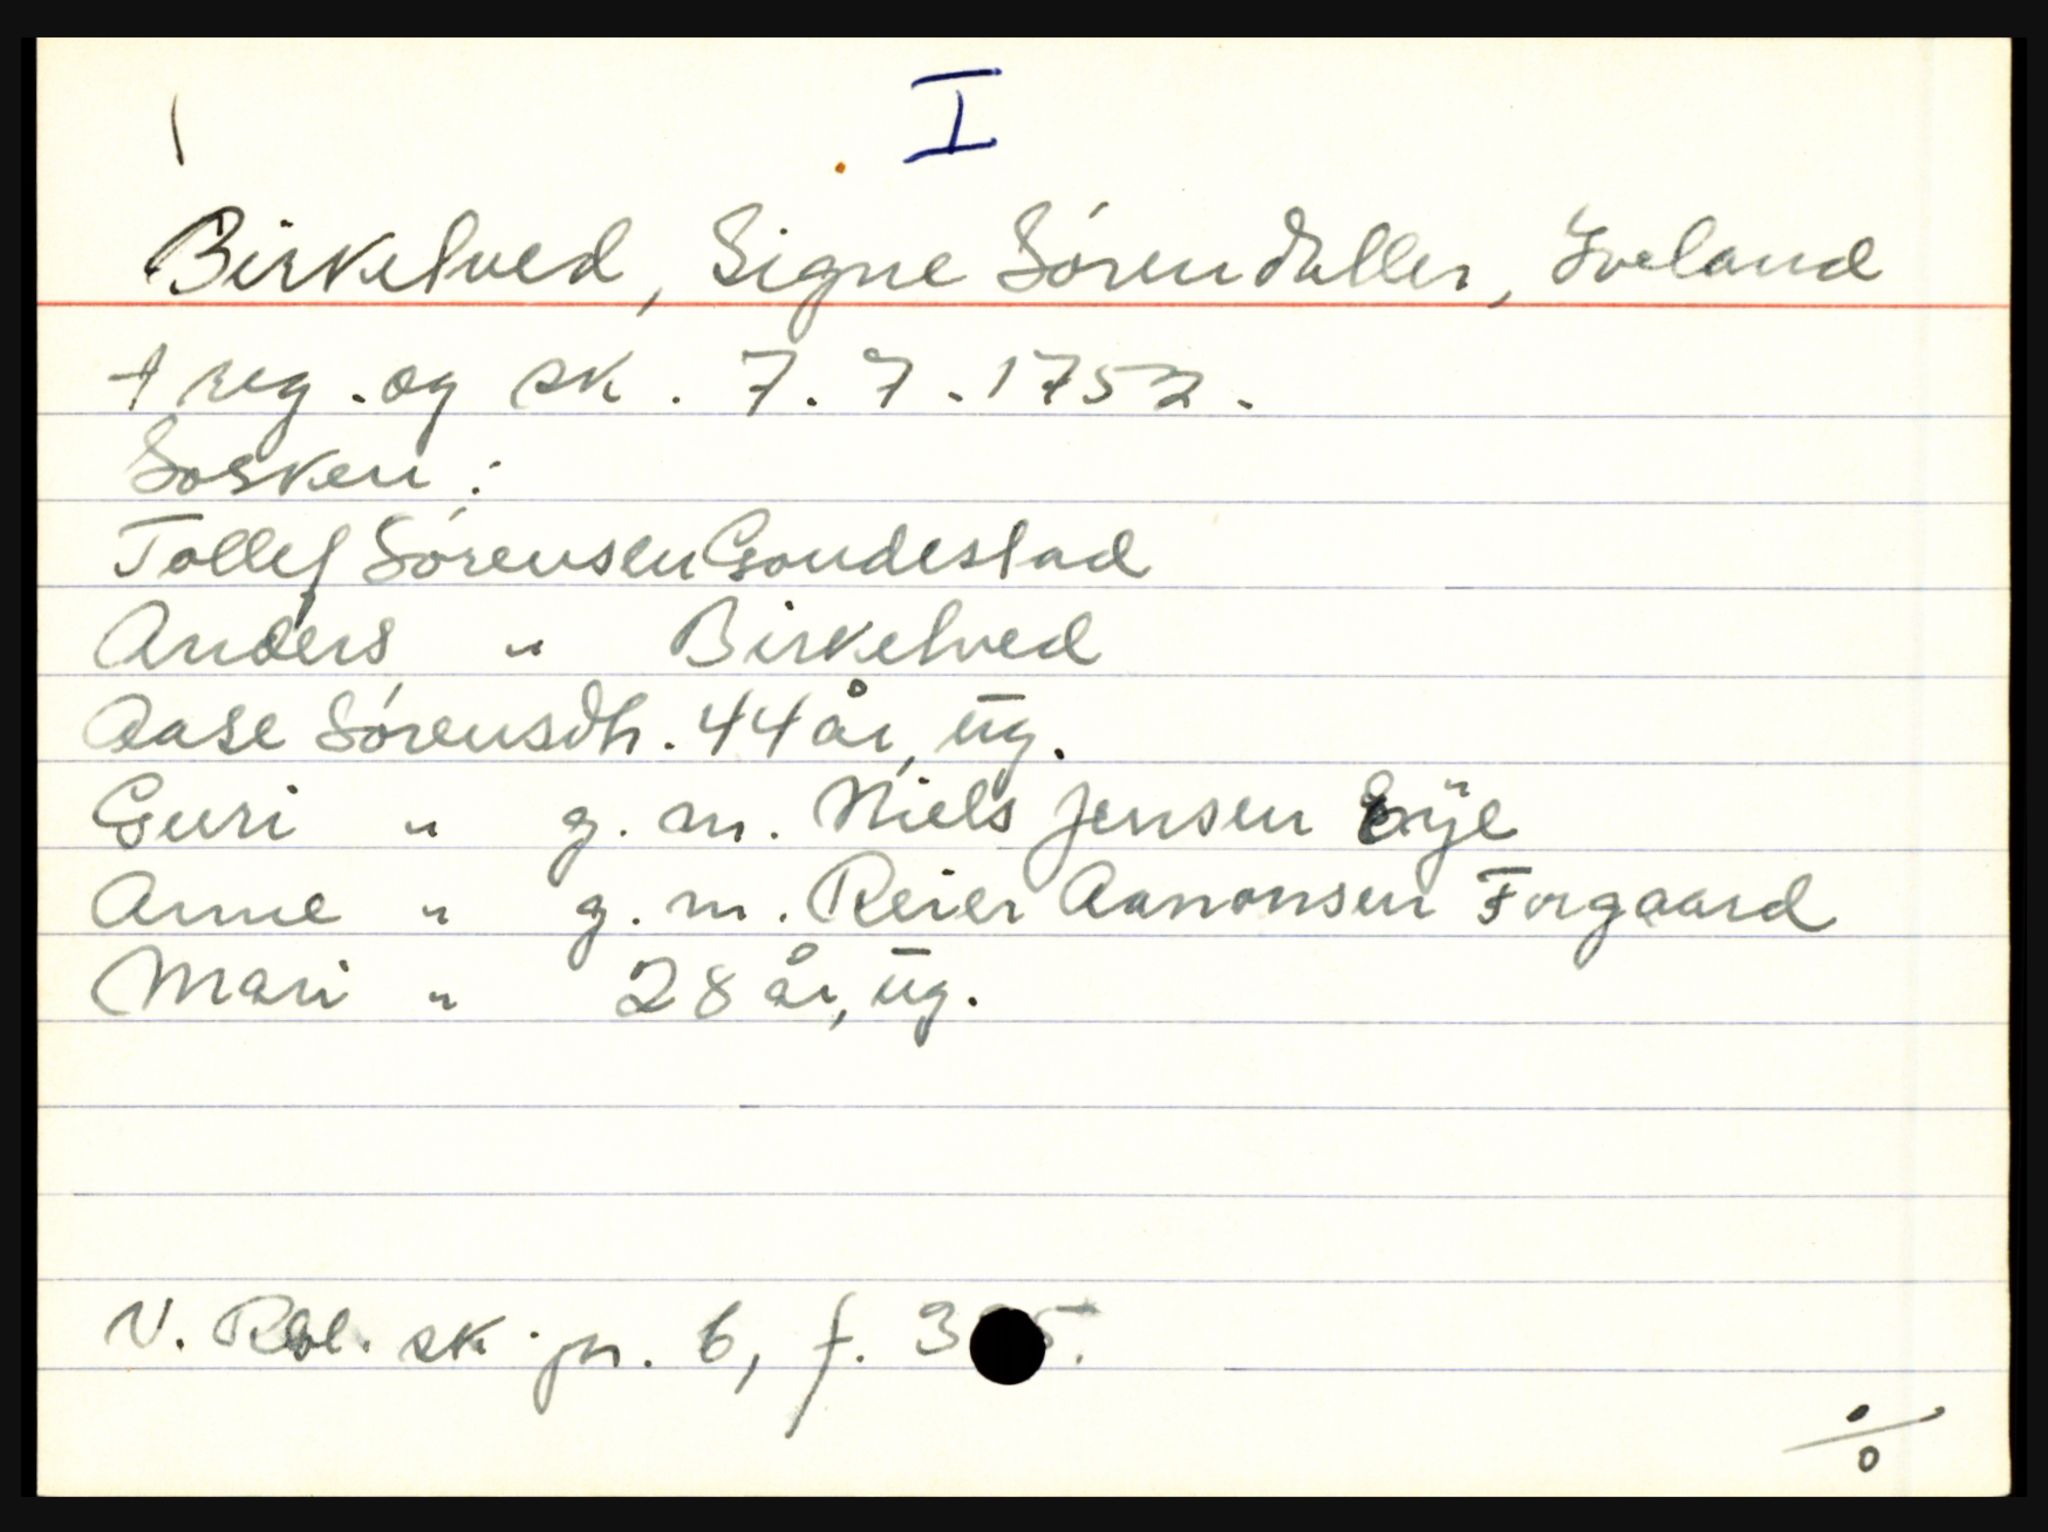 I
Birketved, Signe Sørendatter, Iveland
† reg. og sk. 7.7.1752.
Søsken:
Tollef Sørensen Goudestad
Anders " Birketved
Aase Sørensdtr. 44 år, ug.
Guri " g. m. Niels Jensen Eÿe
Anne " g. m. Reier Aanonsen Forgaard
Mari " 28 år, ug.
V. Rbl. sk.pr. 6, f.